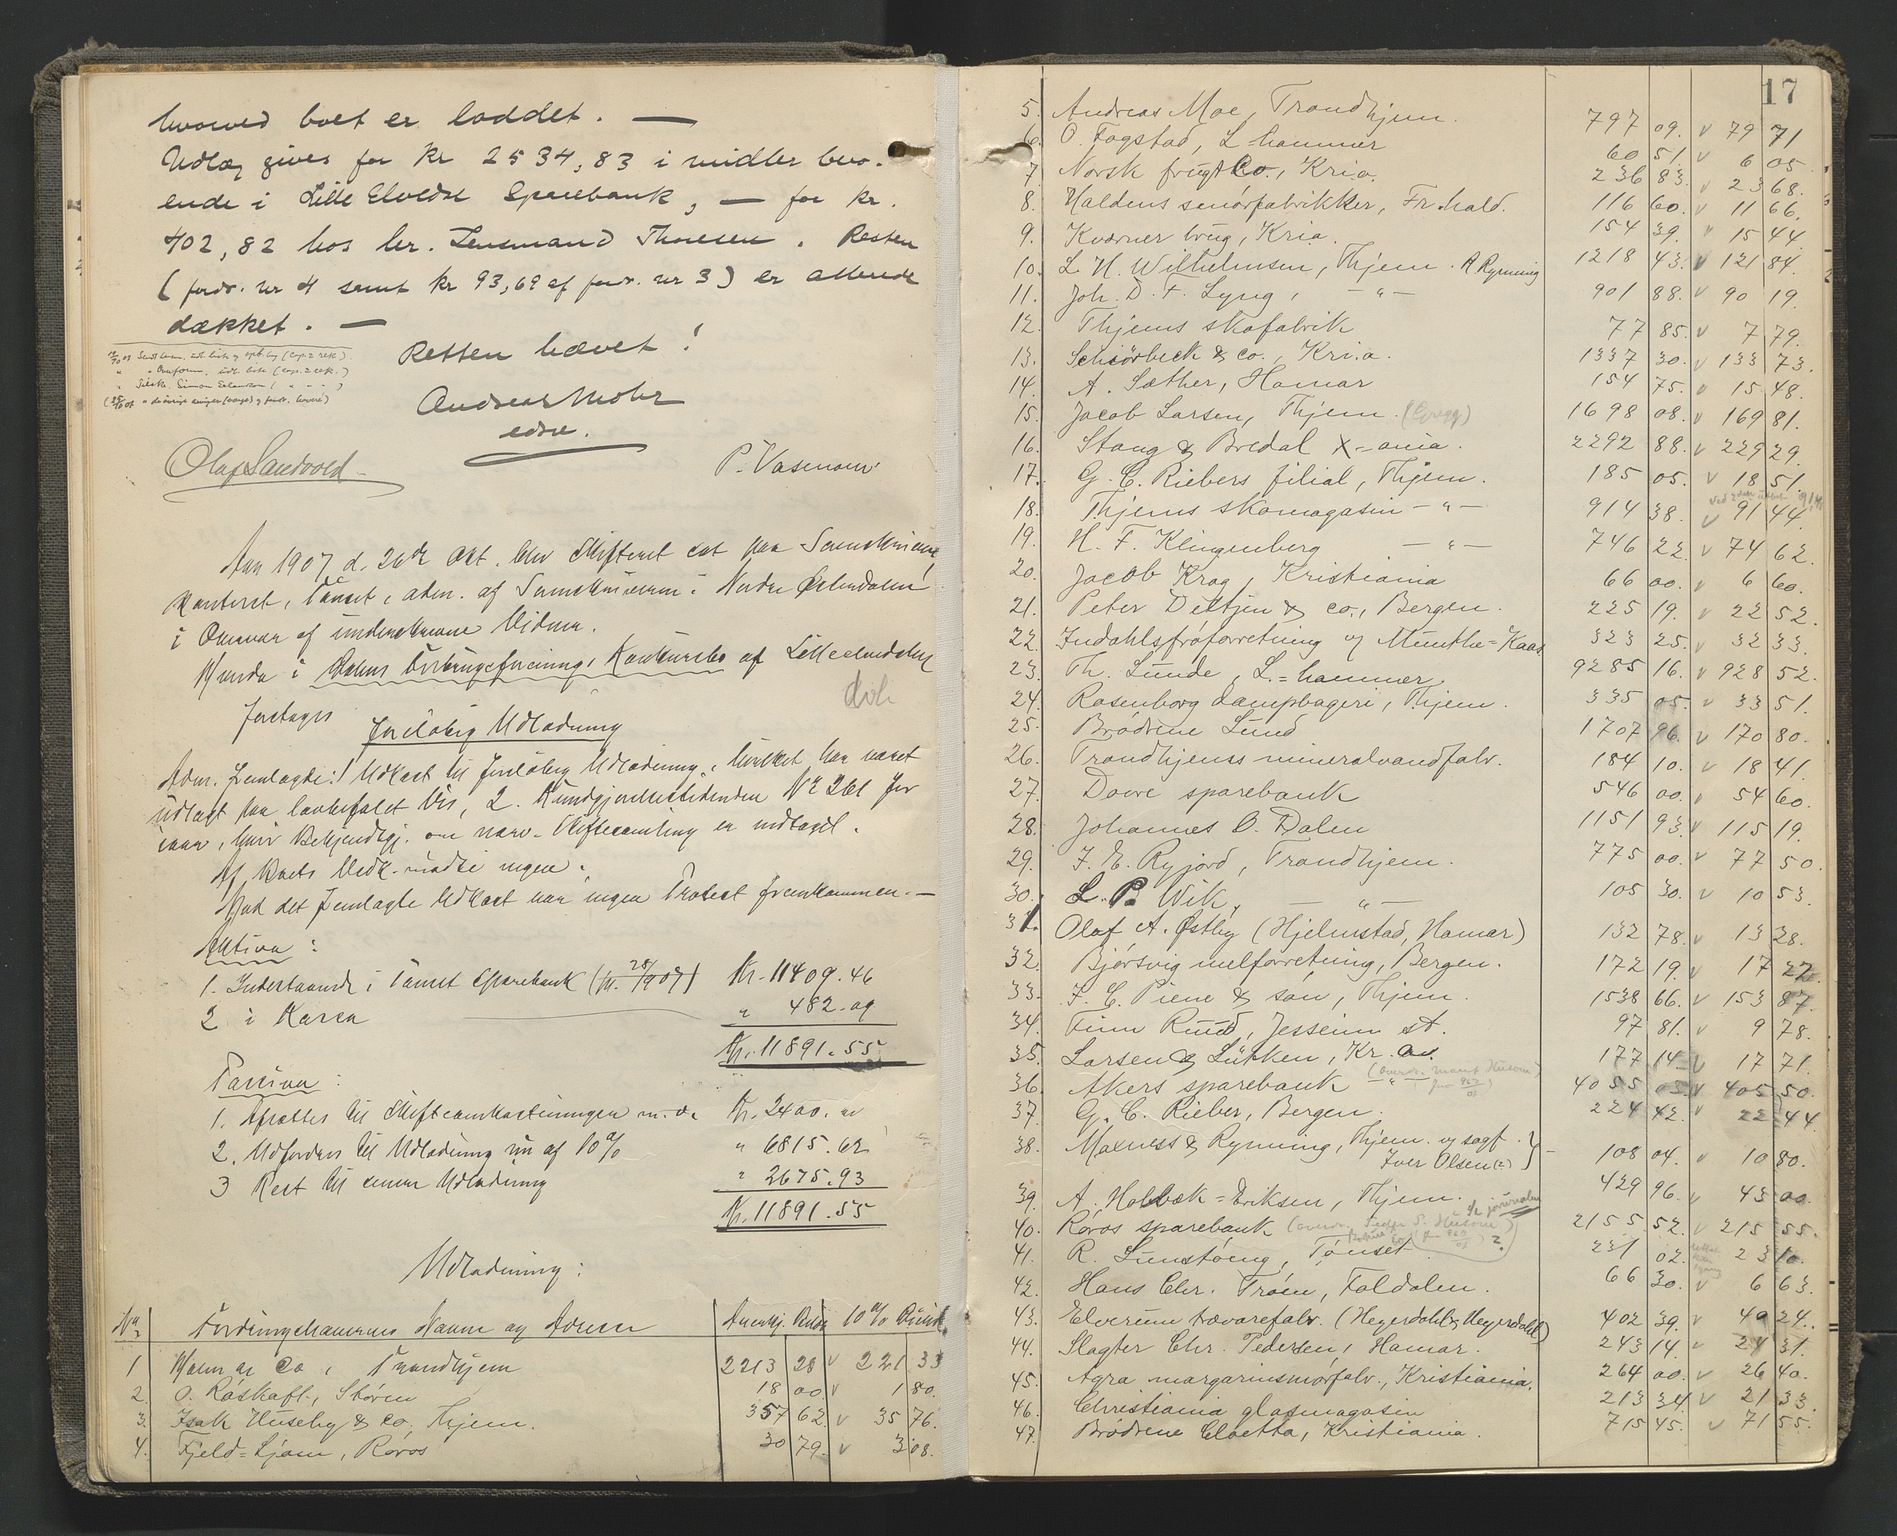 hvorved boet er loddet. —
Udlæg gives for kr 2534,83 i midler bero-
ende i Lille Elvedal Sparebank, — for kr.
402,82 hos hr. Lensmand Thoresen. Resten
(fordr. nr 4 samt kr 93,69 af fordr. nr 3) er allerede
dækket. —
Retten hævet!
Andreas Mohr
edsv.
Olaf Sandvold
P. Vasmoen
Aar 1907 d. 26de Okt. blev Skifteret sat paa Sorenskriver-
kontoret, Tønset, adm. af Sorenskriveren i Nordre Østerdalen
i Overvær af underskrevne Vidner.
Hvorda i Forbrugsforening, Konkursbo af Lilleelvedalen
foretages
foreløbig Udlodning
Adm. fremlagde: 1 Udkast til foreløbig Udlodning, hvilket har været
udlagt paa lovbefalet Vis, 2. Kundgjørelsestidenden No 261 for
iaar, hvor Bekjendtgj. om nærv. Skiftesamling er indtaget.
Af Boets Vedk. mødte ingen.
Mod det fremlagte Udkast var ingen Protest fremkommen. —
Aktiva:
1. Indestaaende i Tønset Sparebank (pr. 28/9 07) Kr. 11409.46
2 i Kassa " 482.09
Kr. 11891.55
Passiva:
1. Afsættes til Skifteomkostninger m. v. Kr. 2400.00
2. Udfordres til Udlodning nu af 10% " 6815.62
3 Rest til senere Udlodning " 2675.93
Kr. 11891.55
Udlodning:
No Fordringshaverens Navn og Adresse Anerkj. Beløb 10% Dividende
1 & Co, Trondhjem 2213 28 v 221 33
2. O. Røskaft, Støren 18 00 v 1 80.
3. Isak Huseby & co, Thjem. 357 62 v 35 76.
4. Fjeld-Ljom, Røros 30 79. v 3 08.
17
5. Andreas Moe, Trondhjem. 797 09. v 79 71
6. O. Fogstad, L hammer 60 51. v 6 05
7. Norsk frugt Co., Kria. 236 83. v 23 68.
8. Haldens senorfabrikker, Fr.hald. 116 60. v 11 66.
9. Kværner brug, Kria. 154 39. v 15 44.
10. L. H. Wilhelmsen, Thjem. R Rynning 1218 43. v 121 84.
11. Joh. D. t. Lyng, — " — 901 88. v 90 19.
12. Thjems skofabrik 77 85. v 7 79.
13. Schiørbeck & co., Kria. 1337 30. v 133 73.
14. A. Sæther, Hamar 154 75. v 15 48.
15. Jacob Larsen, Thjem. (Gregg) 1698 08. v 169 81.
16. Stang & Bredal X-ania. 2292 88. v 229 29.
17. G. C. Riebers filial, Thjem. 185 05. v 18 51.
18. Thjems skomagasin — " — 914 38. v 91 44.
19. H. F. Klingenberg — " — 746 22. v 74 62.
20. Jacob Krag, Kristiania 66 00. v 6 60.
21. Peter Deltjen & co., Bergen. 225 19. v 22 52.
22. Indahlsfrøforretning v/ Munthe-Kaas 323 25. v 32 33.
23. Th. Lunde, L.=hammer. 9285 16. v 928 52.
24. Rosenborg dampbageri, Thjem. 335 05. v 33 51.
25. Brødrene Lund 1707 96. v 170 80.
26. Trondhjems mineralvandfabr. 184 10. v 18 41.
27. Dovre sparebank 546 00. v 54 60.
28. Johannes O. Dalen 1151 93. v 115 19.
29. F. E. Ryjord, Trondhjem. 775 00. v 77 50.
30. L. P. Wik, — " — 105 30. v 10 53.
31. Olaf A. Østby (Hjelmstad, Hamar) 132 78. v 13 28.
32. Bjørsvig melforretning, Bergen. 172 19. v 17 22.
33. F. C. Piene & søn, Thjem. 1538 66. v 153 87.
34. Finn Ruud, Jesseim st. 97 81. v 9 78.
35. Larsen & Lütken, Kr. a. 177 14. v 17 71.
36. Akers sparebank 4055 05. v 405 50.
37. G. C. Rieber, Bergen. 224 42. v 22 44.
38. Malness & Rynning, Thjem. v/ sagf.
Iver Olsen 108 04. v 10 80.
39. A. Holbæk-Eriksen, Thjem. 429 96. v 43 00
40. Røros sparebank 2155 52. v 215 55.
41. R. Sunstöeng, Tønset 231 02. 23 10.
42. Hans Chr. Trøen, Foldalen. 66 30. v 6 63.
43. Elverum tøvarefabr. (Heyerdahl & Heyerdahl) 402 39. v 40 24.
44. Slagter Chr. Pedersen, Hamar. 243 14. v 24 31.
45. Agra margarinsmørfabr., Kristiania. 264 00. v 26 40.
46. Christiania glasmagasin 213 34. v 21 33.
47. Brødrene Cloetta, Kristiania. 715 45. v 71 55.